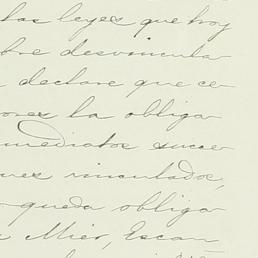 las leyes que hoy
bre desvincula
declare que ce
ones la obliga
nmediatos suce
nes vinculados,
queda obliga
Mier, Escan